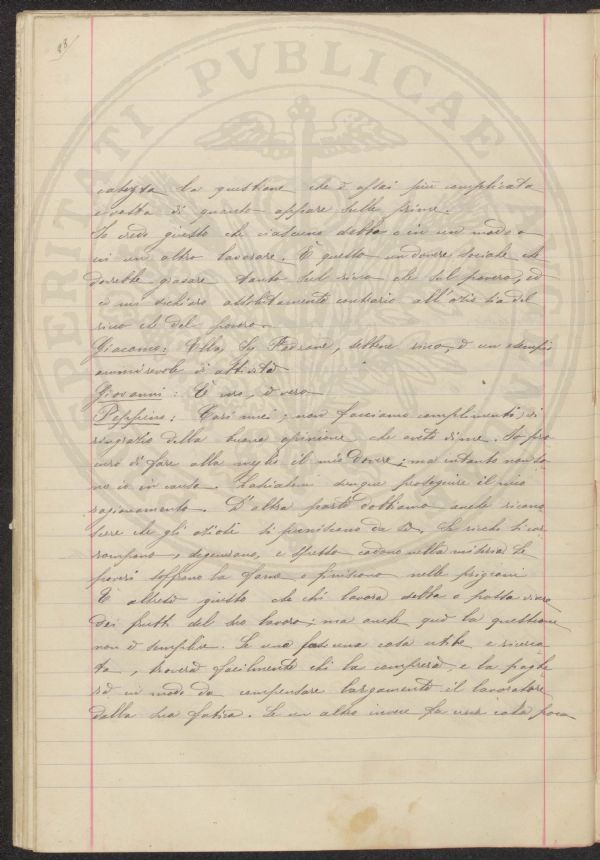 28/
PERITATI PVBLICAE
la questione che è assai più complicata
e vasta di quanto appare sulle prime.
Io credo giusto che ciascuno debba o in un modo o
in un altro lavorare. È questo un dovere sociale che
dovrebbe pesare tanto sul ricco che sul povero, ed
io mi dichiaro assolutamente contrario all'ozio sia del
ricco che del povero.
Giacomo: Ella, Sr Padrone, sebbene ricco, è un esempio
ammirevole di attività
Giovanni: È vero, è vero
Peppino: Cari miei, non facciamo complimenti, vi
ringrazio della buona opinione che avete di me. Io pro
curo di fare alla meglio il mio dovere; ma intanto non so
no io in causa. Lasciatemi dunque proseguire il mio
ragionamento. D'altra parte dobbiamo anche ricono
scere che gli oziosi si puniscono da sè. Se ricchi si cor
rompono, degenerano, e spesso cadono nella miseria. Se
poveri soffrono la fame o finiscono nelle prigioni
È altresì giusto che chi lavora debba e possa vivere
dei frutti del suo lavoro; ma anche qui la questione
non è semplice. Se uno fa una cosa utile e ricerca
ta, troverà facilmente chi la comprerà e la paghe
rà in modo da compensare largamente il lavoratore
della sua fatica. Se un altro invece fa una cosa poco